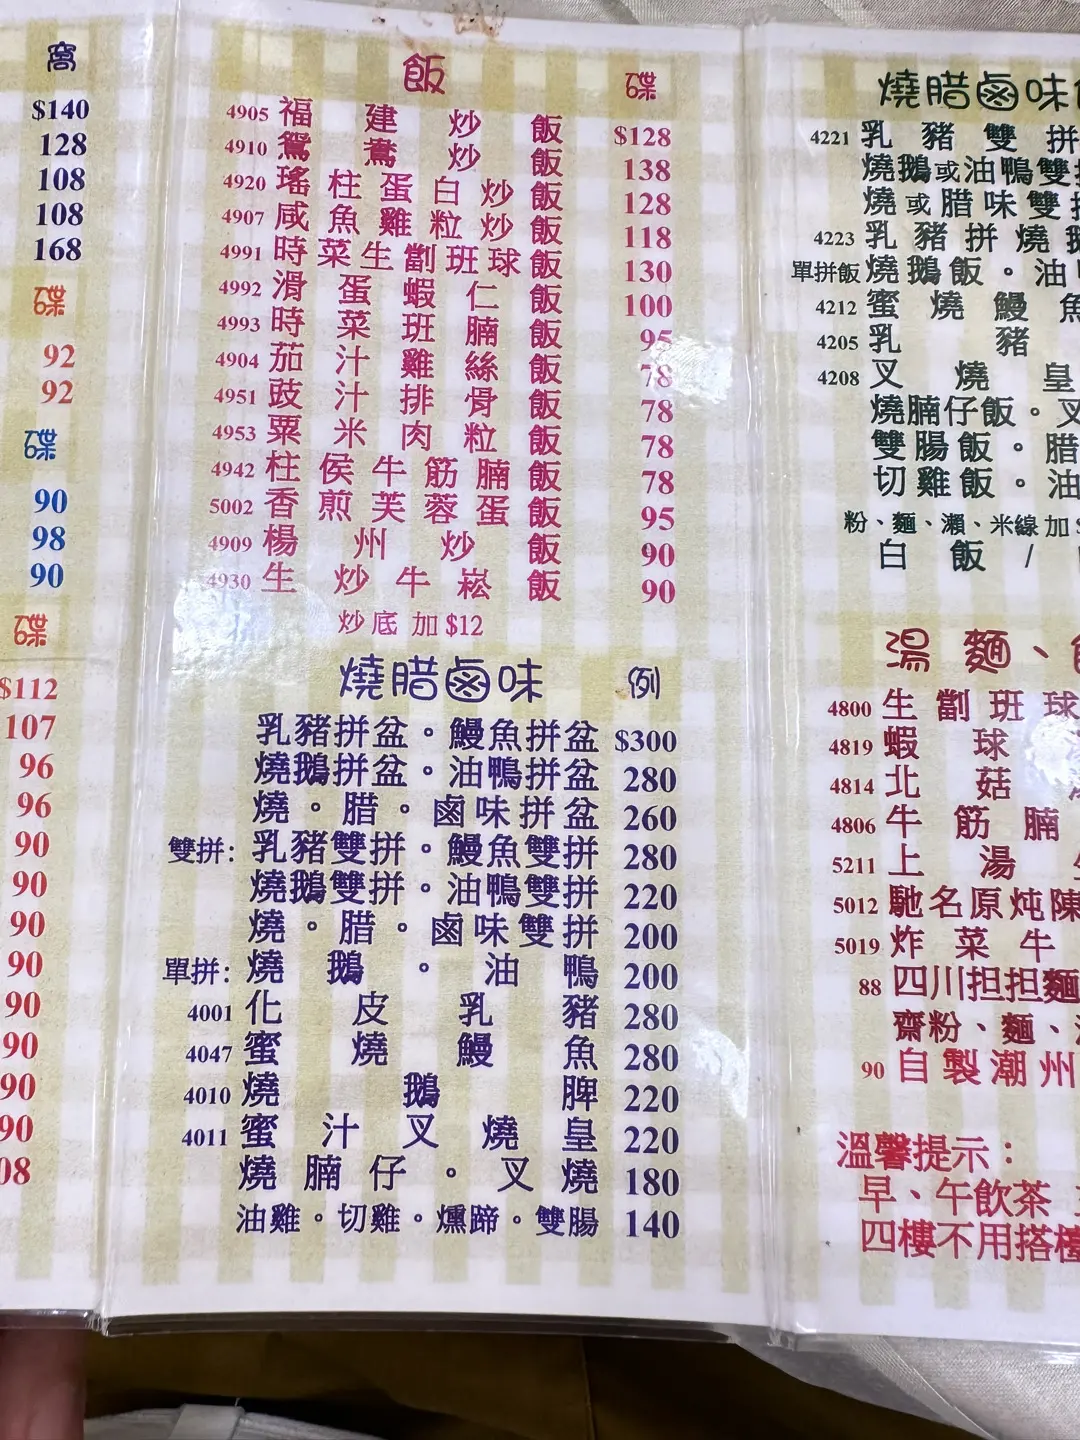 窩
$140
128
108
108
168
碟
92
92
碟
90
98
90
碟
$112
107
96
96
90
90
90
90
90
90
90
90
08
飯 碟
4905 福建炒飯 $128
4910 鴛鴦炒飯 138
4920 瑤柱蛋白炒飯 128
4907 咸魚雞粒炒飯 118
4991 時菜生劏班球飯 130
4992 滑蛋蝦仁飯 100
4993 時菜班腩飯 95
4904 茄汁雞絲飯 78
4951 豉汁排骨飯 78
4953 粟米肉粒飯 78
4942 柱侯牛筋腩飯 78
5002 香煎芙蓉蛋飯 95
4909 楊州炒飯 90
4930 生炒牛崧飯 90
炒底加$12
燒腊鹵味 例
乳豬拼盆。鰻魚拼盆 $300
燒鵝拼盆。油鴨拼盆 280
燒。腊。鹵味拼盆 260
雙拼: 乳豬雙拼。鰻魚雙拼 280
燒鵝雙拼。油鴨雙拼 220
燒。腊。鹵味雙拼 200
單拼: 燒鵝。油鴨 200
4001 化皮乳豬 280
4047 蜜燒鰻魚 280
4010 燒鵝脾 220
4011 蜜汁叉燒皇 220
燒腩仔。叉燒 180
油雞。切雞。燻蹄。雙腸 140
燒腊鹵味
4221 乳豬雙拼
燒鵝或油鴨雙
燒或腊味雙
4223 乳豬拼燒
單拼飯 燒鵝飯。油
4212 蜜燒鰻魚
4205 乳豬
4208 叉燒皇
燒腩仔飯。叉
雙腸飯。腊
切雞飯。油
粉、麵、瀨、米線加
白飯/
湯麵、
4800 生劏班球
4819 蝦球
4814 北菇
4806 牛筋腩
5211 上湯
5012 馳名原炖陳
5019 炸菜牛
88 四川担担麵
齋粉、麵、
90 自製潮州
溫馨提示：
早、午飲茶
四樓不用搭